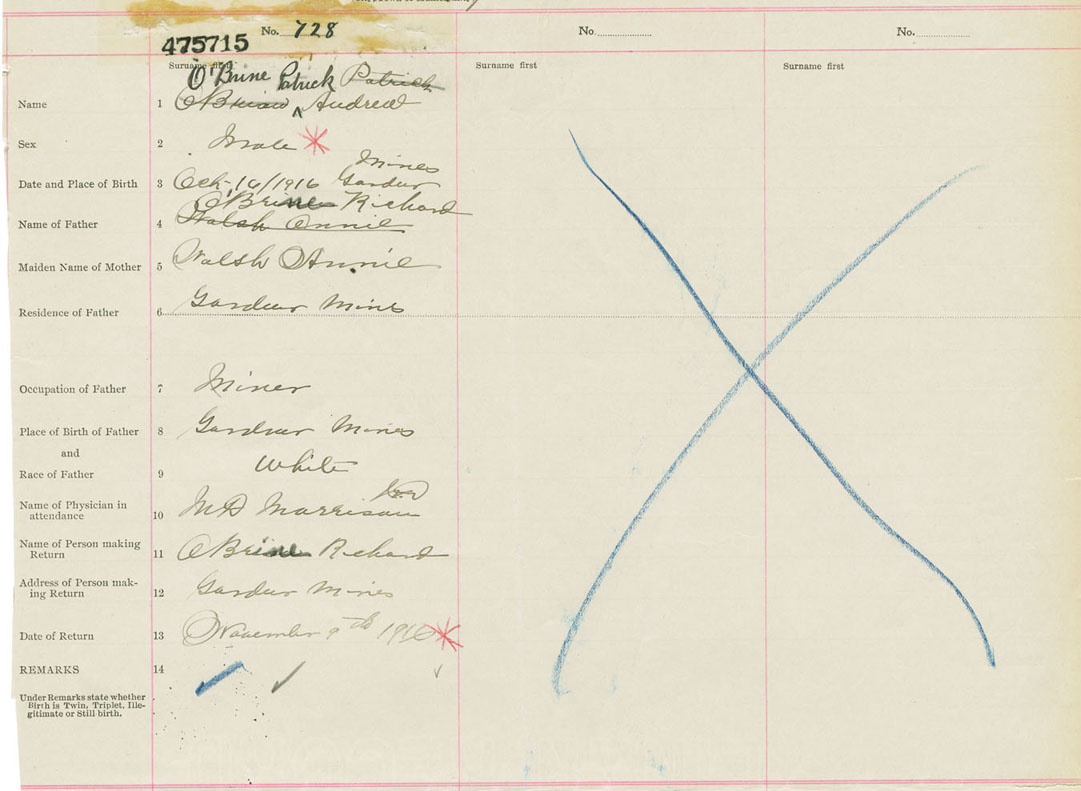 No. 728
No.
No.
475715
Surname first
Surname first
Surname first
O'Brine Patrick Patrick
Name 1 O'Brian ^ Andrew
Sex 2 Male
Mines
Date and Place of Birth 3 Oct. 16/1916 Gardner
O'Brine Richard
Name of Father 4 Walsh Annie
Maiden Name of Mother 5 Walsh Annie
Residence of Father 6 Gardner Mines
Occupation of Father 7 Miner
Place of Birth of Father 8 Gardner Mines
and
White
Race of Father 9
Name of Physician in
attendance 10 M D Morrison
Name of Person making
Return 11 O'Brine Richard
Address of Person mak-
ing Return 12 Gardner Mines
Date of Return 13 November 9th 1916
REMARKS 14
Under Remarks state whether
Birth is Twin, Triplet, Ille-
gitimate or Still birth.